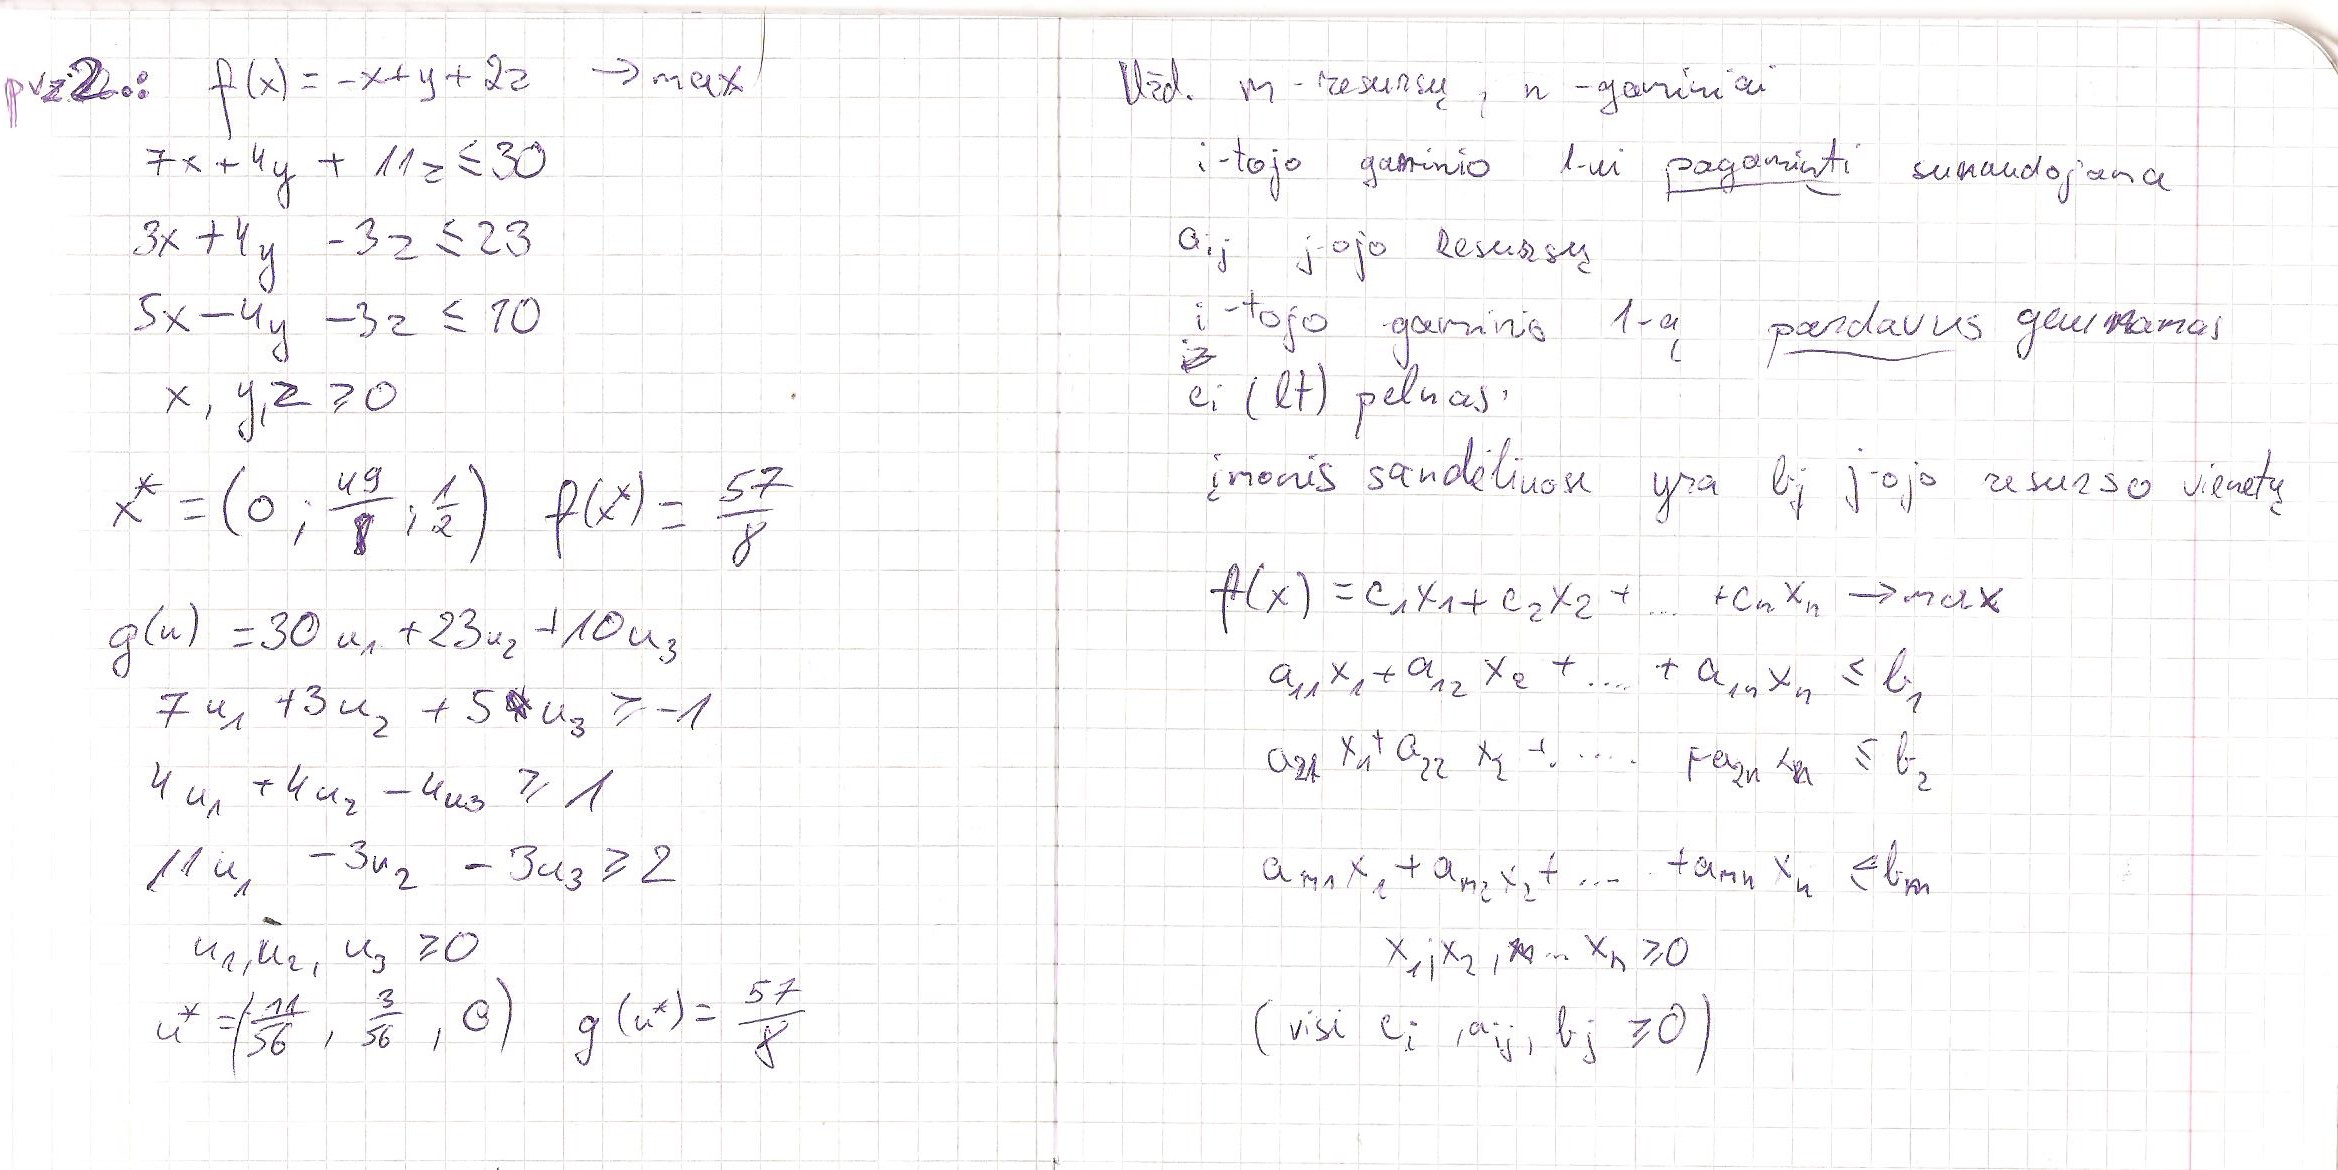 pvz 2.: f(x) = -x+y+2z → max
7x+4y + 11z ≤ 30
3x+4y -3z ≤ 23
5x-4y -3z ≤ 10
x, y, z ≥ 0
x* = (0 ; 49/8 ; 1/2) f(x*) = 57/8
g(u) = 30u₁ + 23u₂ + 10u₃
7u₁ + 3u₂ + 5u₃ ≥ -1
4u₁ + 4u₂ - 4u₃ ≥ 1
11u₁ - 3u₂ - 3u₃ ≥ 2
u₁, u₂, u₃ ≥ 0
u* = (11/56 , 3/56 , 0) g(u*) = 57/8
Užd. m - resursų, n - gaminiai
i-tojo gaminio 1-ui pagaminti sunaudojama
aᵢⱼ j-ojo resursų
i-tojo gaminio 1-ą pardavus gaunamas
cᵢ (lt) pelnas.
įmonės sandėliuose yra bⱼ j-ojo resurso vienetų
f(x) = c₁x₁ + c₂x₂ + ... + cₙxₙ → max
a₁₁x₁ + a₁₂x₂ + .... + a₁ₙxₙ ≤ b₁
a₂₁x₁ + a₂₂x₂ + .... + a₂ₙxₙ ≤ b₂
aₘ₁x₁ + aₘ₂x₂ + ... + aₘₙxₙ ≤ bₘ
x₁, x₂, ... xₙ ≥ 0
(visi cᵢ, aᵢⱼ, bⱼ ≥ 0)